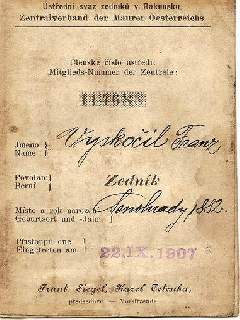 Ústřední svaz zedníků v Rakousku.
Zentralverband der Maurer Oesterreichs
Členské číslo ústřed.
Mitglieds-Nummer der Zentrale:
Jméno
Name
Vyskočil Franz
Povolání
Beruf
Zedník
Místo a rok narození
Geburtsort und -Jahr
1882
Přistoupil dne
Beigetreten am
22.IX.1907
Frant. Siegl, Karel
předsedové — Vorsitzende